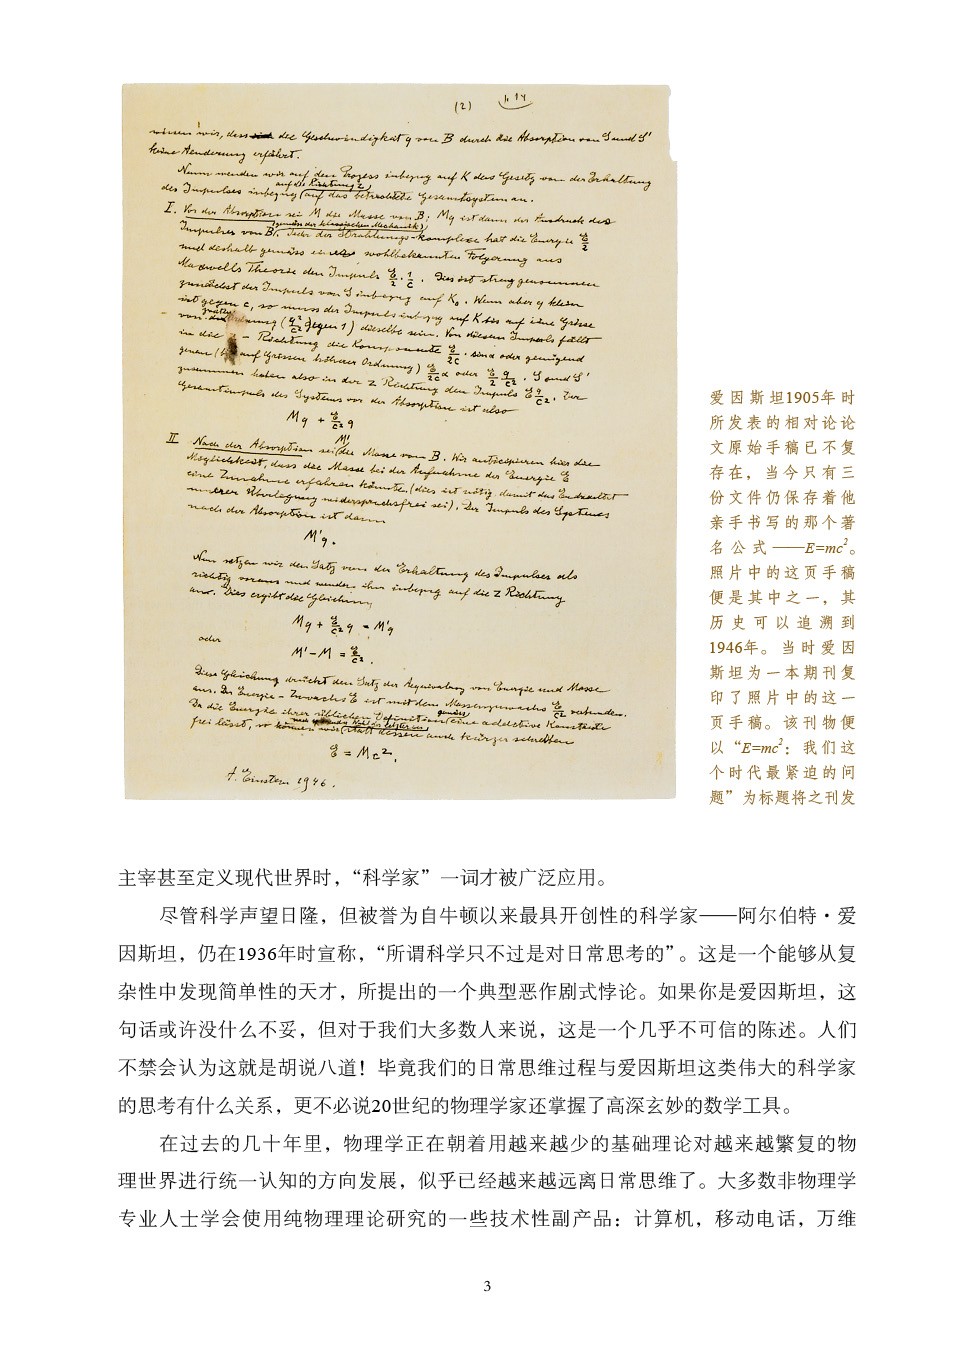 (2)
wissen wir, dass die Geschwindigkeit q von B durch die Absorption von S und S'
keine Aenderung erfährt.
Nunn wenden wir auf den Prozess inbezug auf K das Gesetz von der Erhaltung
auf die Richtung z
des Impulses inbezug auf das betrachtete Gesamtsystem an.
I. Vor der Absorption sei M die Masse von B; Mq ist dann der Ausdruck des
(gemäss der klassischen Mechanik)
Impulses von B. Jeder der Strahlungs-komplexe hat die Energie E/2
und deshalb gemäss einer wohlbekannten Folgerung aus
Maxwells Theorie den Impuls E/2 · 1/c. Dies ist streng genommen
zunächst der Impuls von S inbezug auf K₀. Wenn aber q klein
ist gegen c, so muss der Impuls inbezug auf K bis auf eine Grösse
von Ordnung (q²/c² gegen 1) dieselbe sein. Von diesem Impuls fällt
in die z - Richtung die Komponente E/2c · sin α oder genügend
genau (bis auf Grössen höherer Ordnung) E/2c α oder E/2 q/c². S und S'
zusammen haben also in der z Richtung den Impuls E q/c². Der
Gesamtimpuls des Systems vor der Absorption ist also
Mq + E/c² q
II. Nach der Absorption sei M' die Masse von B. Wir anticipieren hier die
Möglichkeit, dass die Masse bei der Aufnahme der Energie E
eine Zunahme erfahren könnte (dies ist nötig damit das Endresultat
unserer Überlegung widerspruchsfrei sei). Der Impuls des Systemes
nach der Absorption ist dann
M'q.
Nun setzen wir den Satz von der Erhaltung des Impulses als
richtig voraus und wenden ihn inbezug auf die z Richtung
an. Dies ergibt die Gleichung
Mq + E/c² q = M'q
oder
M' − M = E/c².
Diese Gleichung drückt den Satz der Aequivalenz von Energie und Masse
aus. Der Energie-Zuwachs E ist mit dem Massenzuwachs E/c² verbunden.
Da die Energie ihrer üblichen Definition gemäss eine additive Konstante
frei lässt, so können wir statt dessen auch kürzer schreiben
E = Mc².
A. Einstein 1946.
爱因斯坦1905年时
所发表的相对论论
文原始手稿已不复
存在，当今只有三
份文件仍保存着他
亲手书写的那个著
名公式——E=mc²。
照片中的这页手稿
便是其中之一，其
历史可以追溯到
1946年。当时爱因
斯坦为一本期刊复
印了照片中的这一
页手稿。该刊物便
以“E=mc²：我们这
个时代最紧迫的问
题”为标题将之刊发
主宰甚至定义现代世界时，“科学家”一词才被广泛应用。
尽管科学声望日隆，但被誉为自牛顿以来最具开创性的科学家——阿尔伯特·爱
因斯坦，仍在1936年时宣称，“所谓科学只不过是对日常思考的”。这是一个能够从复
杂性中发现简单性的天才，所提出的一个典型恶作剧式悖论。如果你是爱因斯坦，这
句话或许没什么不妥，但对于我们大多数人来说，这是一个几乎不可信的陈述。人们
不禁会认为这就是胡说八道！毕竟我们的日常思维过程与爱因斯坦这类伟大的科学家
的思考有什么关系，更不必说20世纪的物理学家还掌握了高深玄妙的数学工具。
在过去的几十年里，物理学正在朝着用越来越少的基础理论对越来越繁复的物
理世界进行统一认知的方向发展，似乎已经越来越远离日常思维了。大多数非物理学
专业人士学会使用纯物理理论研究的一些技术性副产品：计算机，移动电话，万维
3